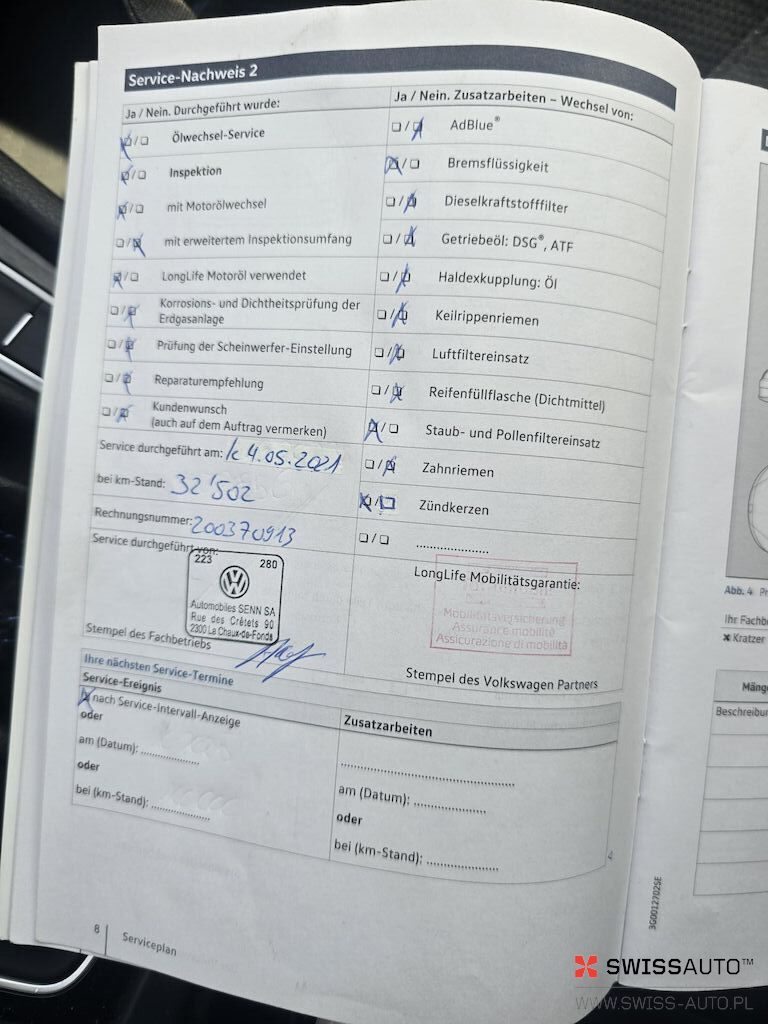 Service-Nachweis 2
Ja / Nein. Durchgeführt wurde:
Ölwechsel-Service
Inspektion
mit Motorölwechsel
mit erweitertem Inspektionsumfang
LongLife Motoröl verwendet
Korrosions- und Dichtheitsprüfung der
Erdgasanlage
Prüfung der Scheinwerfer-Einstellung
Reparaturempfehlung
Kundenwunsch
(auch auf dem Auftrag vermerken)
Service durchgeführt am: 4.05.2021
bei km-Stand: 32'502
Rechnungsnummer: 200370913
Service durchgeführt von:
223 280
Automobiles SENN SA
Rue des Crêtets 90
2300 La Chaux-de-Fonds
Stempel des Fachbetriebs
Ja / Nein. Zusatzarbeiten – Wechsel von:
AdBlue®
Bremsflüssigkeit
Dieselkraftstofffilter
Getriebeöl: DSG®, ATF
Haldexkupplung: Öl
Keilrippenriemen
Luftfiltereinsatz
Reifenfüllflasche (Dichtmittel)
Staub- und Pollenfiltereinsatz
Zahnriemen
Zündkerzen
....................
LongLife Mobilitätsgarantie:
Mobilitätsversicherung
Assurance mobilité
Assicurazione di mobilità
Stempel des Volkswagen Partners
Ihre nächsten Service-Termine
Service-Ereignis
nach Service-Intervall-Anzeige
oder
am (Datum): ................
oder
bei (km-Stand): ................
Zusatzarbeiten
................................................
am (Datum): ....................
oder
bei (km-Stand): ....................
8 Serviceplan
3G0012702SE
Abb. 4
Ihr Fachb
Kratzer
Mänge
Beschreibun
SWISSAUTO™
WWW.SWISS-AUTO.PL